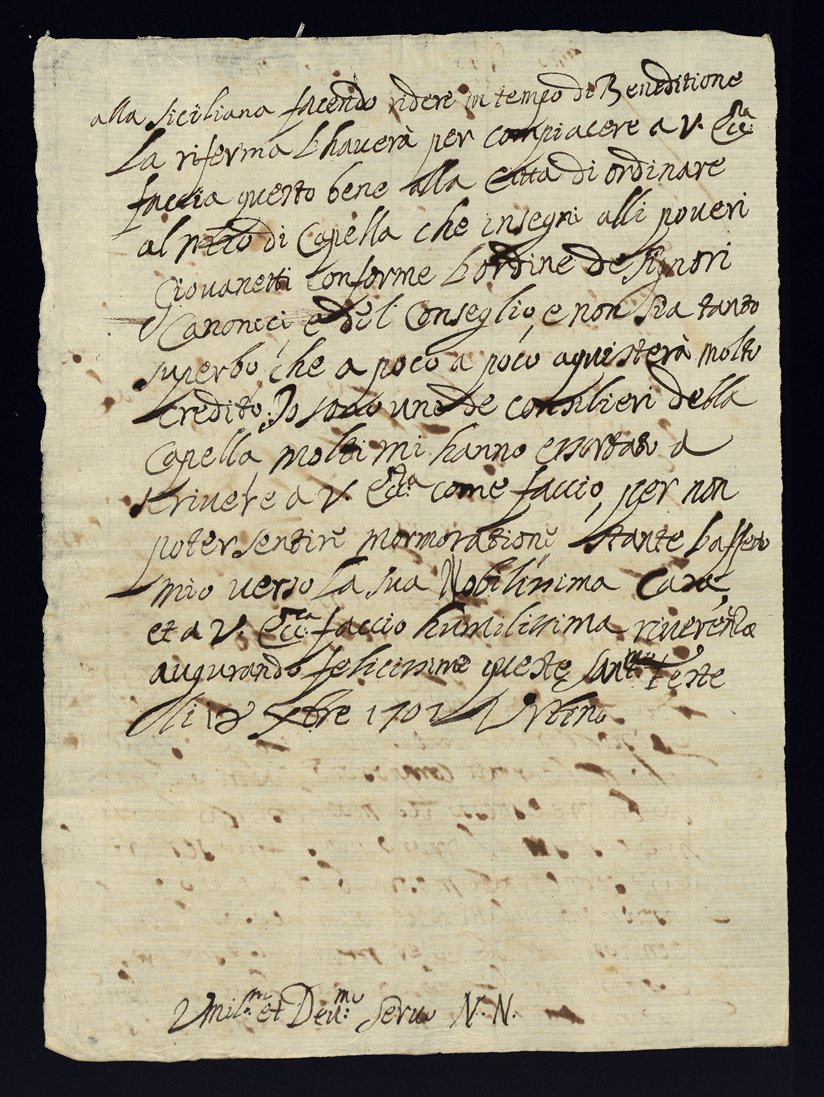 alla siciliana facendo ridere in tempo di Beneditione
La riferma l'hauerà per compiacere a V. Ecc.za
faccia questo bene alla Città di ordinare
al di Capella che insegni alli poueri
Giouanetti conforme l'ordine de Signori
Canonici e del Conseglio, e non sia tanto
superbo che a poco a poco aquisterà molto
credito. Io sono uno de consilieri della
Capella molti mi hanno essortato a
scriuere a V. Ecc.za come faccio, per non
poter sentire mormoratione stante l'affetto
mio verso la sua Nobilissima Casa,
et a V. Ecc.za faccio humilissima riuerenza
augurando felicissime queste Sant.me feste
li Xbre 1701 Urbino
Umil.mo et Deu.mo seruo N. N.